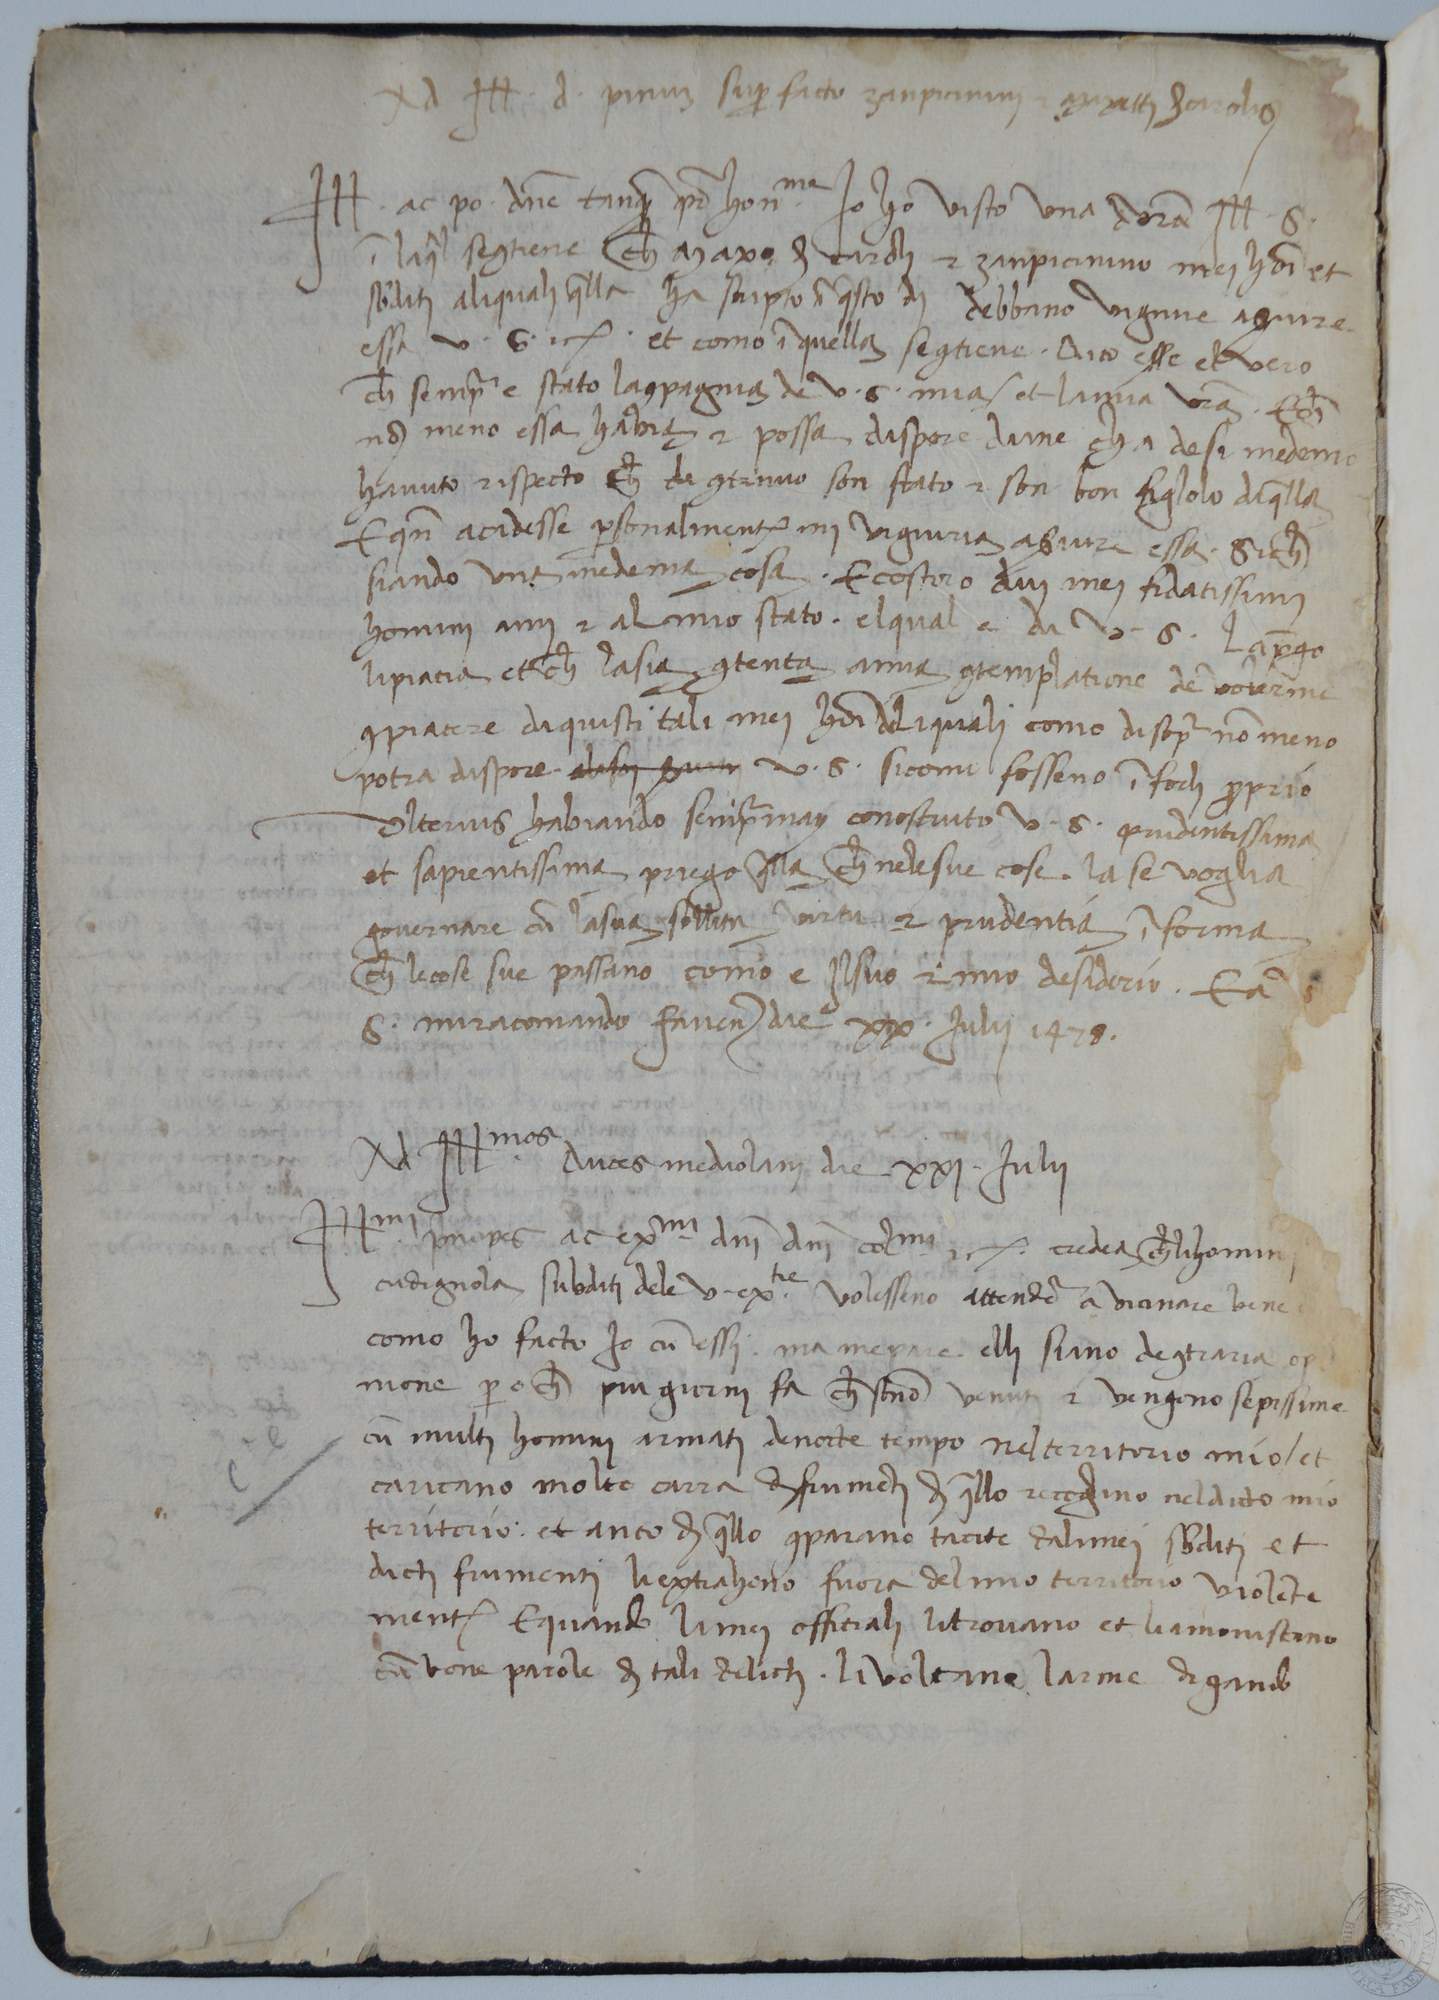 Ad Ill. d. pinum sup facto zanpicinini
Ill. ac po. dne tanq pr honme Io ho visto una vra Ill. S.
i laql segtiene ch Maxo d caroli et zanpicinino mei hoi et
sbditi aliquali qlla ha scripto questo di debbano vignire aservire
essa v. S. ec. et como i quella segtiene. Dico esse el vero
ch sempr e stato la gpagnia de v. S. mia / et la mia vra. Echi
no meno essa habia et possa dispore di me ch a de si medemo
havuto rispecto ch di gtinuo son stato et son bon figlolo di qlla
E qn acadesse psonalmente mi vigniria aservire essa. Sich
siando una medema cosa. E costoro dui mei fidatissimi
homini ami et al mio stato. el qual e di v. S. La pgo
li piacia et ch la sia gtenta a mia gtemplatione de volerme
gpiacere di quisti tali mei hoi deliquali como disopr no meno
potra dispore v. S. sicomi fosseno i forli pprio
Ulterius habiando semprmay conosciuto v. S. prudentissima
et sapientissima priego qlla ch nele sue cose. la se voglia
governare cu la sua sollita virtu et prudentia i forma
ch le cose sue passano como e il suo et mio desiderio. E a
S. mi racomando faven die xx. Julij 1478.
Ad Illmos Duces mediolani die xxi. Julij
Illmi principes ac exmi dni dni colmi ec. credea ch li homini
cudignola subditi dele v. extie volesseno attender a vicinare bene
como ho facto Io cu essi. ma me pare elli siano de gtraria op
nione p o ch piu giorni fa ch sono venuti et vengono sepissime
cu multi homini armati de nocte tempo nel territorio mio / et
caricano molte carra de frumeti d qllo recoglino nel dicto mio
territorio. et anco d qllo gparano tacite dali mei sbditi et
dicti frumenti li extraheno fuora del mio territorio violente
mente E quando li mei offitiali li trovano et li amoniscano
cu bone parole d tali delicti. li voltano larme digando